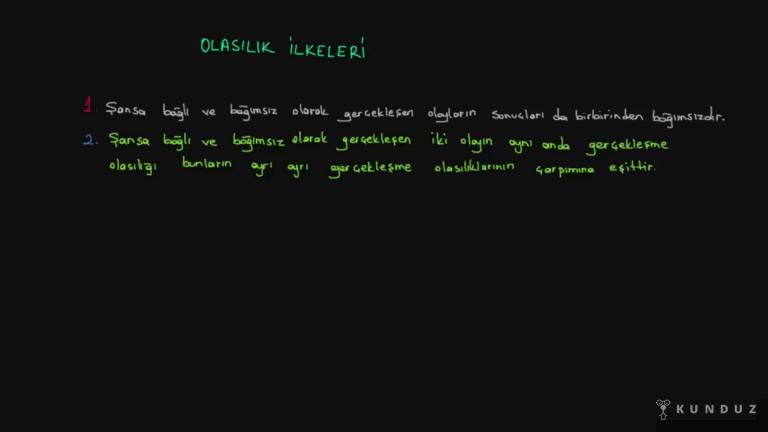 OLASILIK İLKELERİ
1 Şansa bağlı ve bağımsız olarak gerçekleşen olayların sonuçları da birbirinden bağımsızdır.
2. Şansa bağlı ve bağımsız olarak gerçekleşen iki olayın aynı anda gerçekleşme
olasılığı bunların ayrı ayrı gerçekleşme olasılıklarının çarpımına eşittir.
KUNDUZ